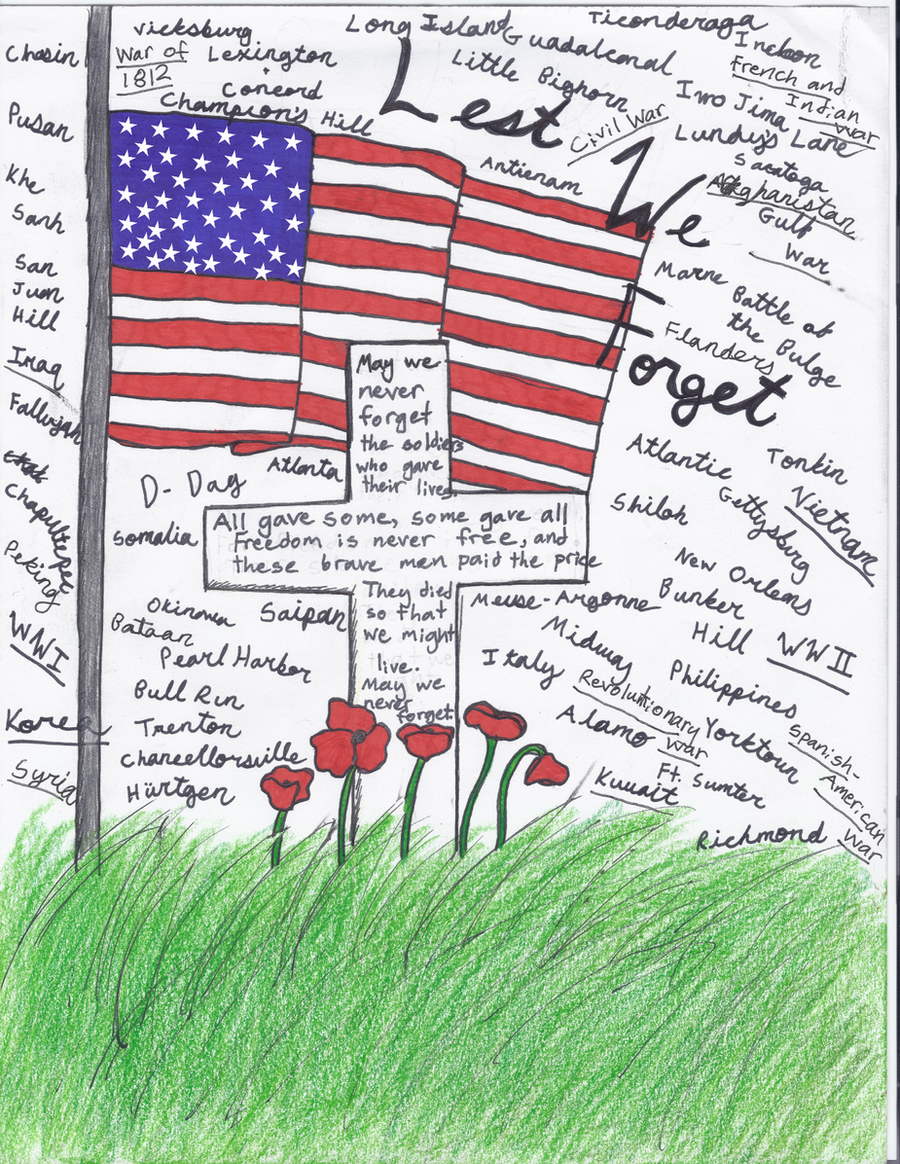 Vicksburg
War of
1812
Lexington
+
Concord
Champion's Hill
Long Island
Guadalconal
Little Bighorn
Ticonderaga
Inchon
French and
Indian
War
Iwo Jima
Lundy's Lane
Saratoga
Afghanistan
Gulf
War
Civil War
Antienam
Lest
We
Forget
Chosin
Pusan
Khe
Sanh
San
Juan
Hill
Iraq
Fallujah
Chapultepec
Peking
WWI
Korea
Syria
Marne
Battle of
the Bulge
Flanders
May we
never
forget
the soldiers
who gave
their lives.
All gave some, some gave all
Freedom is never free, and
these brave men paid the price
They died
so that
we might
live.
May we
never
forget
D-Day
Atlanta
Somalia
Okinawa
Saipan
Bataan
Pearl Harbor
Bull Run
Trenton
Chancellorsville
Hürtgen
Atlantic
Tonkin
Gettysburg
Vietnam
Shiloh
New Orleans
Meuse-Argonne
Bunker
Hill
WWII
Midway
Italy
Philippines
Revolutionary
War
Alamo
Yorktown
Spanish-
American
War
Ft. Sumter
Kuwait
Richmond